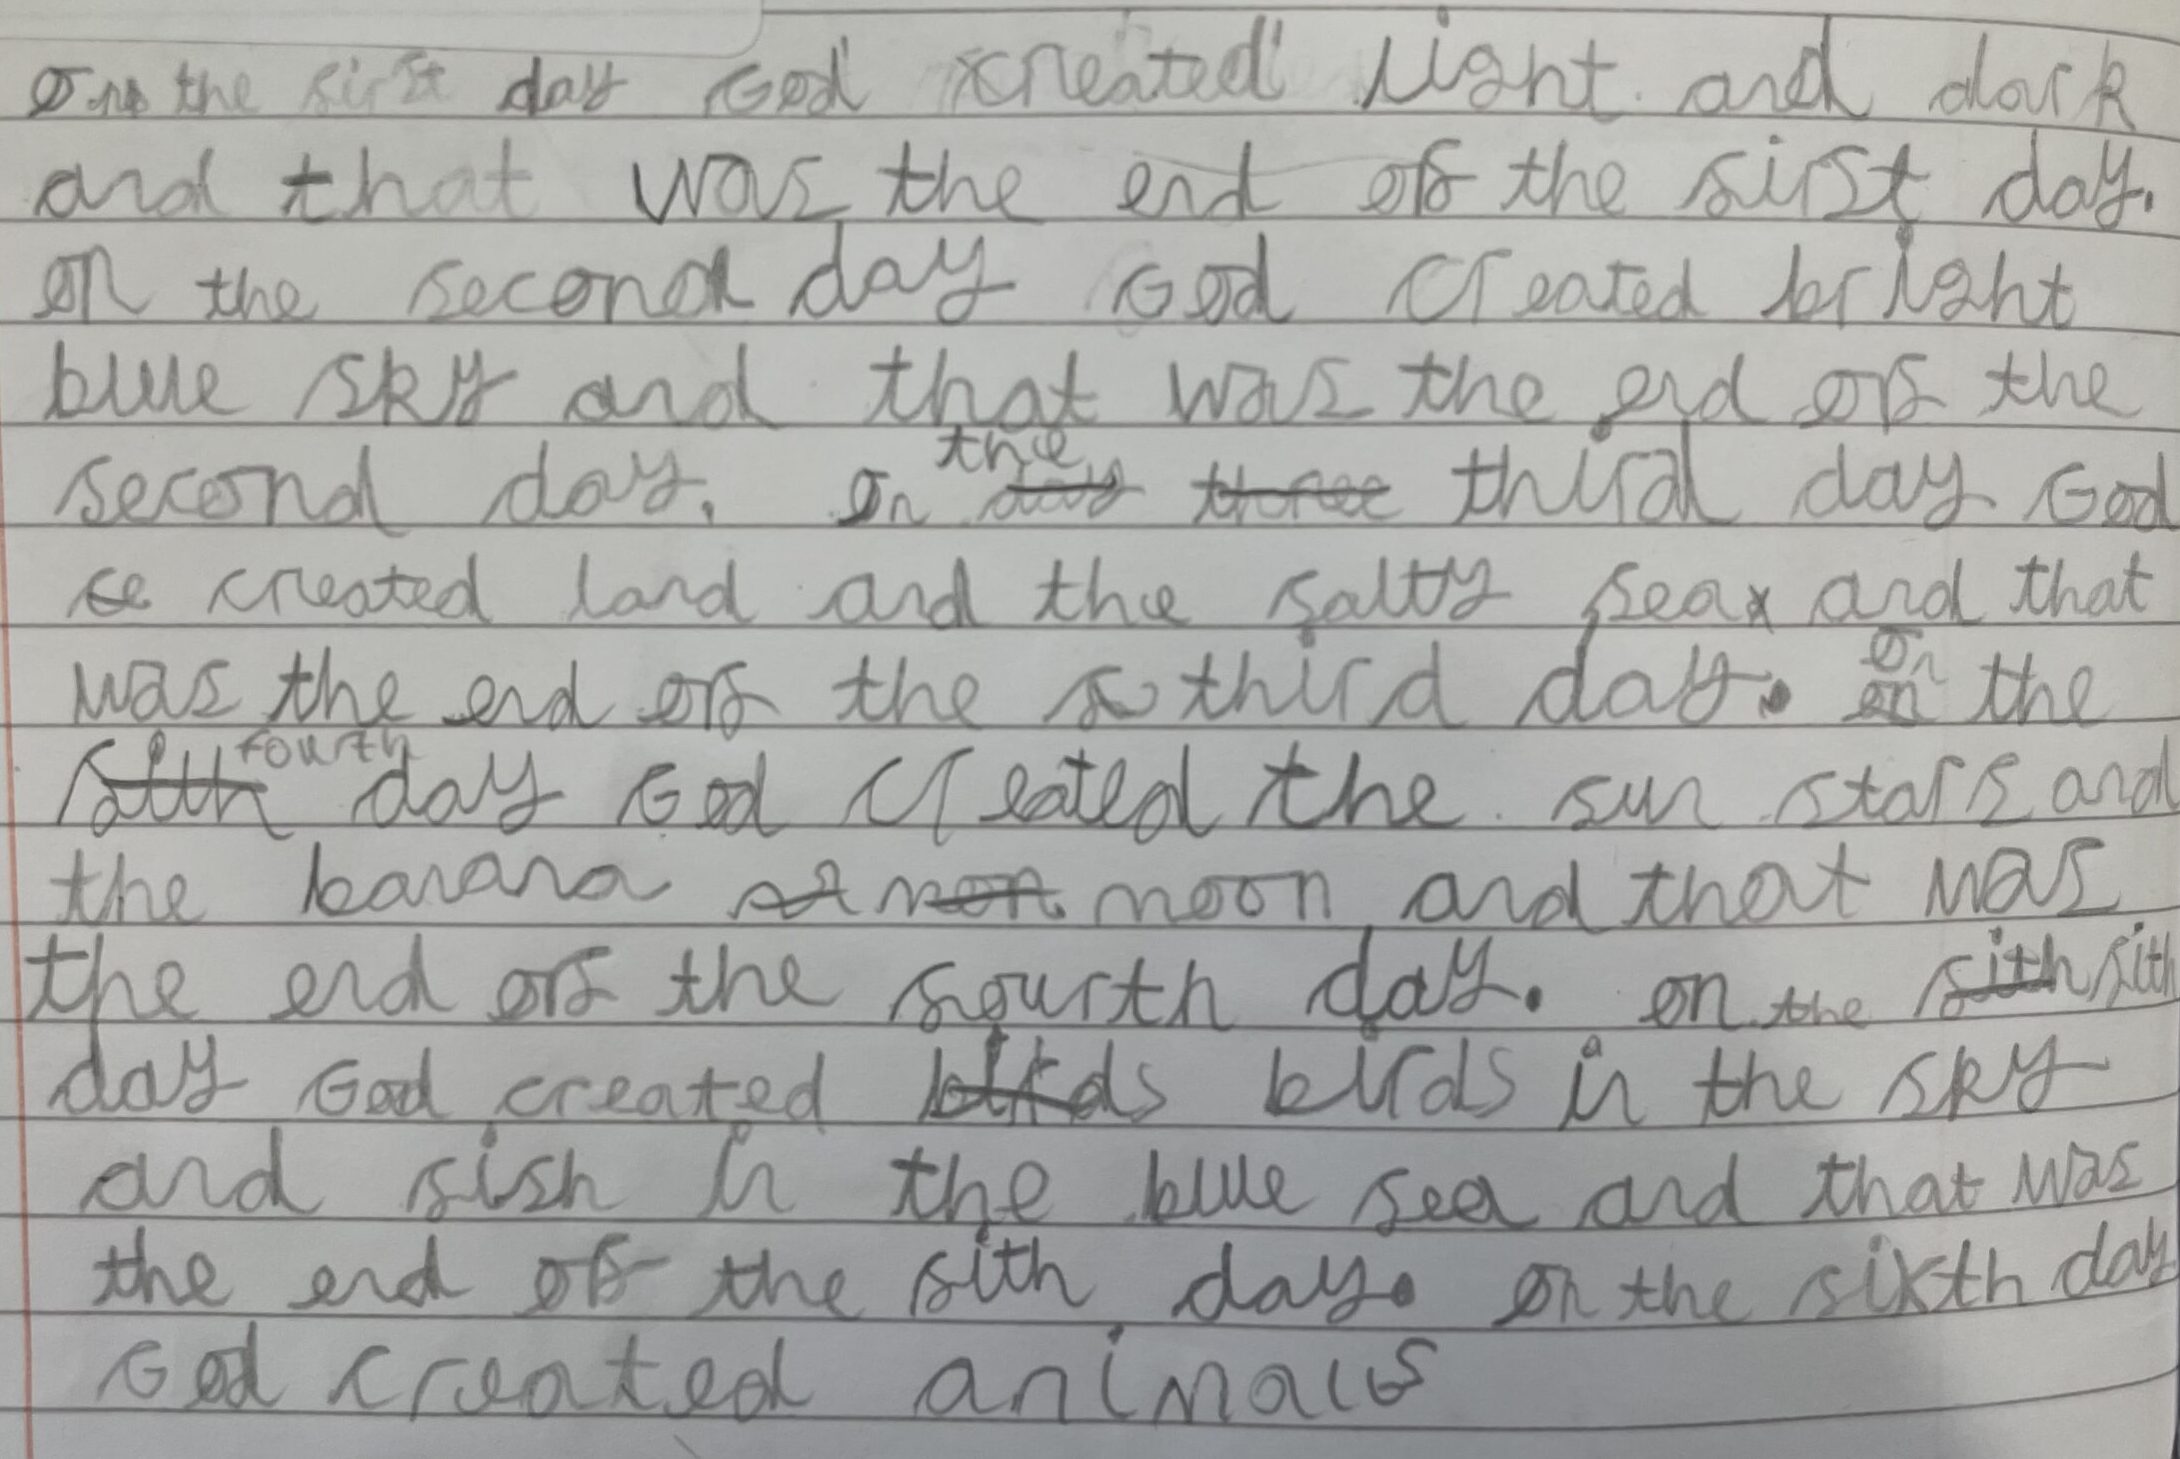 On the first day God created light and dark
and that was the end of the first day.
on the second day God created bright
blue sky and that was the end of the
second day. On the third day God
created land and the salty sea and that
was the end of the third day. On the
fourth day God created the sun stars and
the banana moon and that was
the end of the fourth day. on the fith
day God created birds in the sky
and fish in the blue sea and that was
the end of the fith day. On the sixth day
God created animals